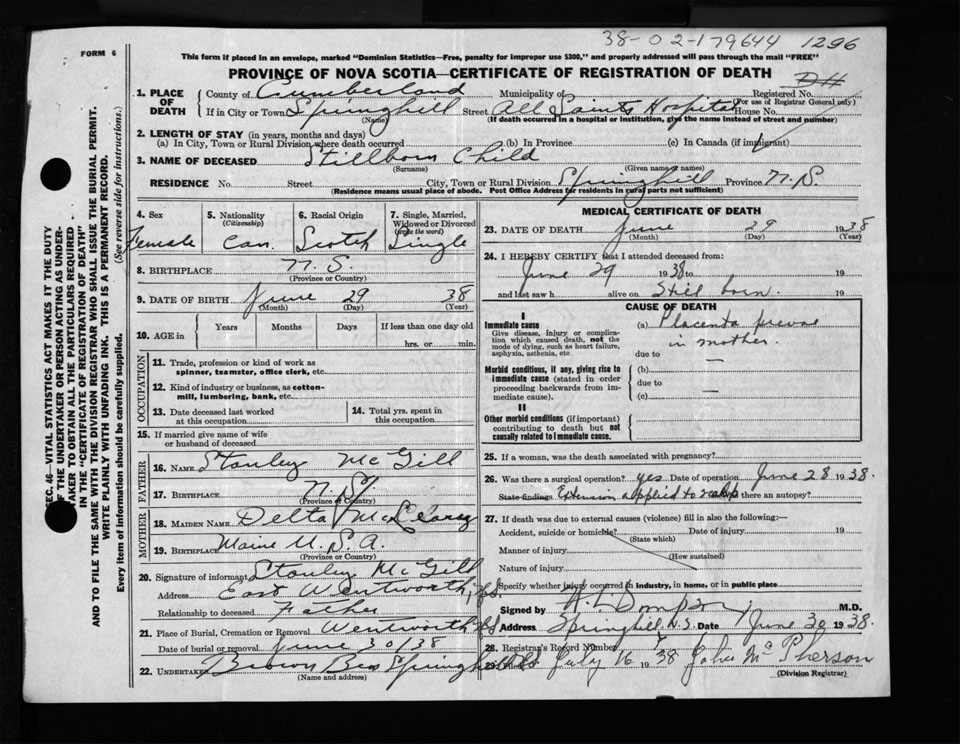 38-02-179644 1296
FORM 6
This form if placed in an envelope, marked "Dominion Statistics—Free, penalty for improper use $300," and properly addressed will pass through the mail "FREE"
PROVINCE OF NOVA SCOTIA—CERTIFICATE OF REGISTRATION OF DEATH
1. PLACE OF DEATH
County of Cumberland Municipality of Registered No.
(For use of Registrar General only)
If in City or Town Springhill Street All Saints Hospital House No.
(Name) (If death occurred in a hospital or institution, give the name instead of street and number)
2. LENGTH OF STAY (in years, months and days)
(a) In City, Town or Rural Division where death occurred (b) In Province (c) In Canada (if immigrant)
3. NAME OF DECEASED Stillborn Child
(Surname) (Given name or names)
RESIDENCE No. Street City, Town or Rural Division Springhill Province N.S.
(Residence means usual place of abode. Post Office Address for residents in rural parts not sufficient)
4. Sex Female
5. Nationality (Citizenship) Can.
6. Racial Origin Scotch
7. Single, Married, Widowed or Divorced (write the word) Single
8. BIRTHPLACE N.S.
(Province or Country)
9. DATE OF BIRTH June 29 38
(Month) (Day) (Year)
10. AGE in Years Months Days If less than one day old
hrs. or min.
OCCUPATION
11. Trade, profession or kind of work as spinner, teamster, office clerk, etc.
12. Kind of industry or business, as cotton-mill, lumbering, bank, etc.
13. Date deceased last worked at this occupation
14. Total yrs. spent in this occupation
15. If married give name of wife or husband of deceased
FATHER
16. NAME Stanley McGill
17. BIRTHPLACE N.S.
(Province or Country)
MOTHER
18. MAIDEN NAME Delta McLeary
19. BIRTHPLACE Maine U.S.A.
(Province or Country)
20. Signature of informant Stanley McGill
Address East Wentworth, N.S.
Relationship to deceased Father
21. Place of Burial, Cremation or Removal Wentworth N.S.
Date of burial or removal June 30/38
22. UNDERTAKER Brown Bros Springhill
(Name and address)
MEDICAL CERTIFICATE OF DEATH
23. DATE OF DEATH June 29 1938
(Month) (Day) (Year)
24. I HEREBY CERTIFY that I attended deceased from:
June 29 1938 to 19
and last saw h alive on Still born. 19
CAUSE OF DEATH
I
Immediate cause
Give disease, injury or complication which caused death, not the mode of dying, such as heart failure, asphyxia, asthenia, etc
(a) Placenta previa
in mother.
due to —
Morbid conditions, if any, giving rise to immediate cause (stated in order proceeding backwards from immediate cause).
(b)
due to —
(c)
II
Other morbid conditions (if important) contributing to death but not causally related to immediate cause.
25. If a woman, was the death associated with pregnancy?
26. Was there a surgical operation? yes Date of operation June 28 1938.
State findings Extension applied to scalp there an autopsy?
27. If death was due to external causes (violence) fill in also the following:—
Accident, suicide or homicide? Date of injury 19
(State which)
Manner of injury
(How sustained)
Nature of injury
Specify whether injury occurred in industry, in home, or in public place
Signed by M.D.
Address Springhill, N.S. Date June 30 1938.
28. Registrar's Record Number
29. July 16 1938 John McPherson
(Division Registrar)
SEC. 46—VITAL STATISTICS ACT MAKES IT THE DUTY
OF THE UNDERTAKER OR PERSON ACTING AS UNDER-
TAKER TO OBTAIN ALL THE PARTICULARS REQUIRED
IN THE "CERTIFICATE OF REGISTRATION OF DEATH"
AND TO FILE THE SAME WITH THE DIVISION REGISTRAR WHO SHALL ISSUE THE BURIAL PERMIT.
WRITE PLAINLY WITH UNFADING INK. THIS IS A PERMANENT RECORD.
Every item of information should be carefully supplied. (See reverse side for instructions.)